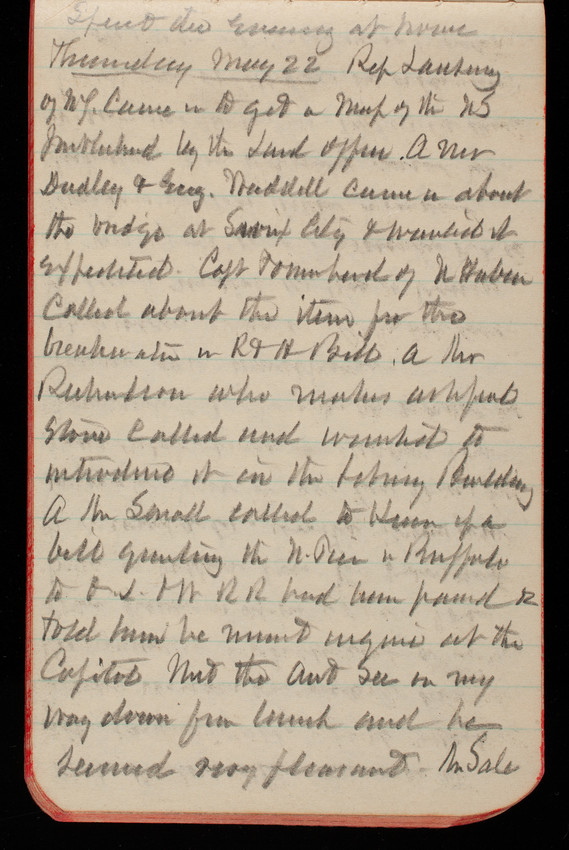 Spent the Evening at home
Thursday May 22 Rep Lansing
of N.Y. Came in to get a Map of the US
published by the Land Office. A Mr
Dudley & Eng. Waddell came in about
the bridge at Sioux City & wanted it
Expedited. Capt Townshend of N Haven
Called about the item for the
breakwater in R & H Bill. A Mr
Richardson who makes
Stone called and wanted to
introduce it in the Library Building
A Mr Small called to know if a
bill granting the N. Pier in Buffalo
to D. L. & W R R had been passed &
told him he must inquire at the
Capitol Met the Ant Sec on my
way down from lunch and he
seemed very pleasant. Mr Sale